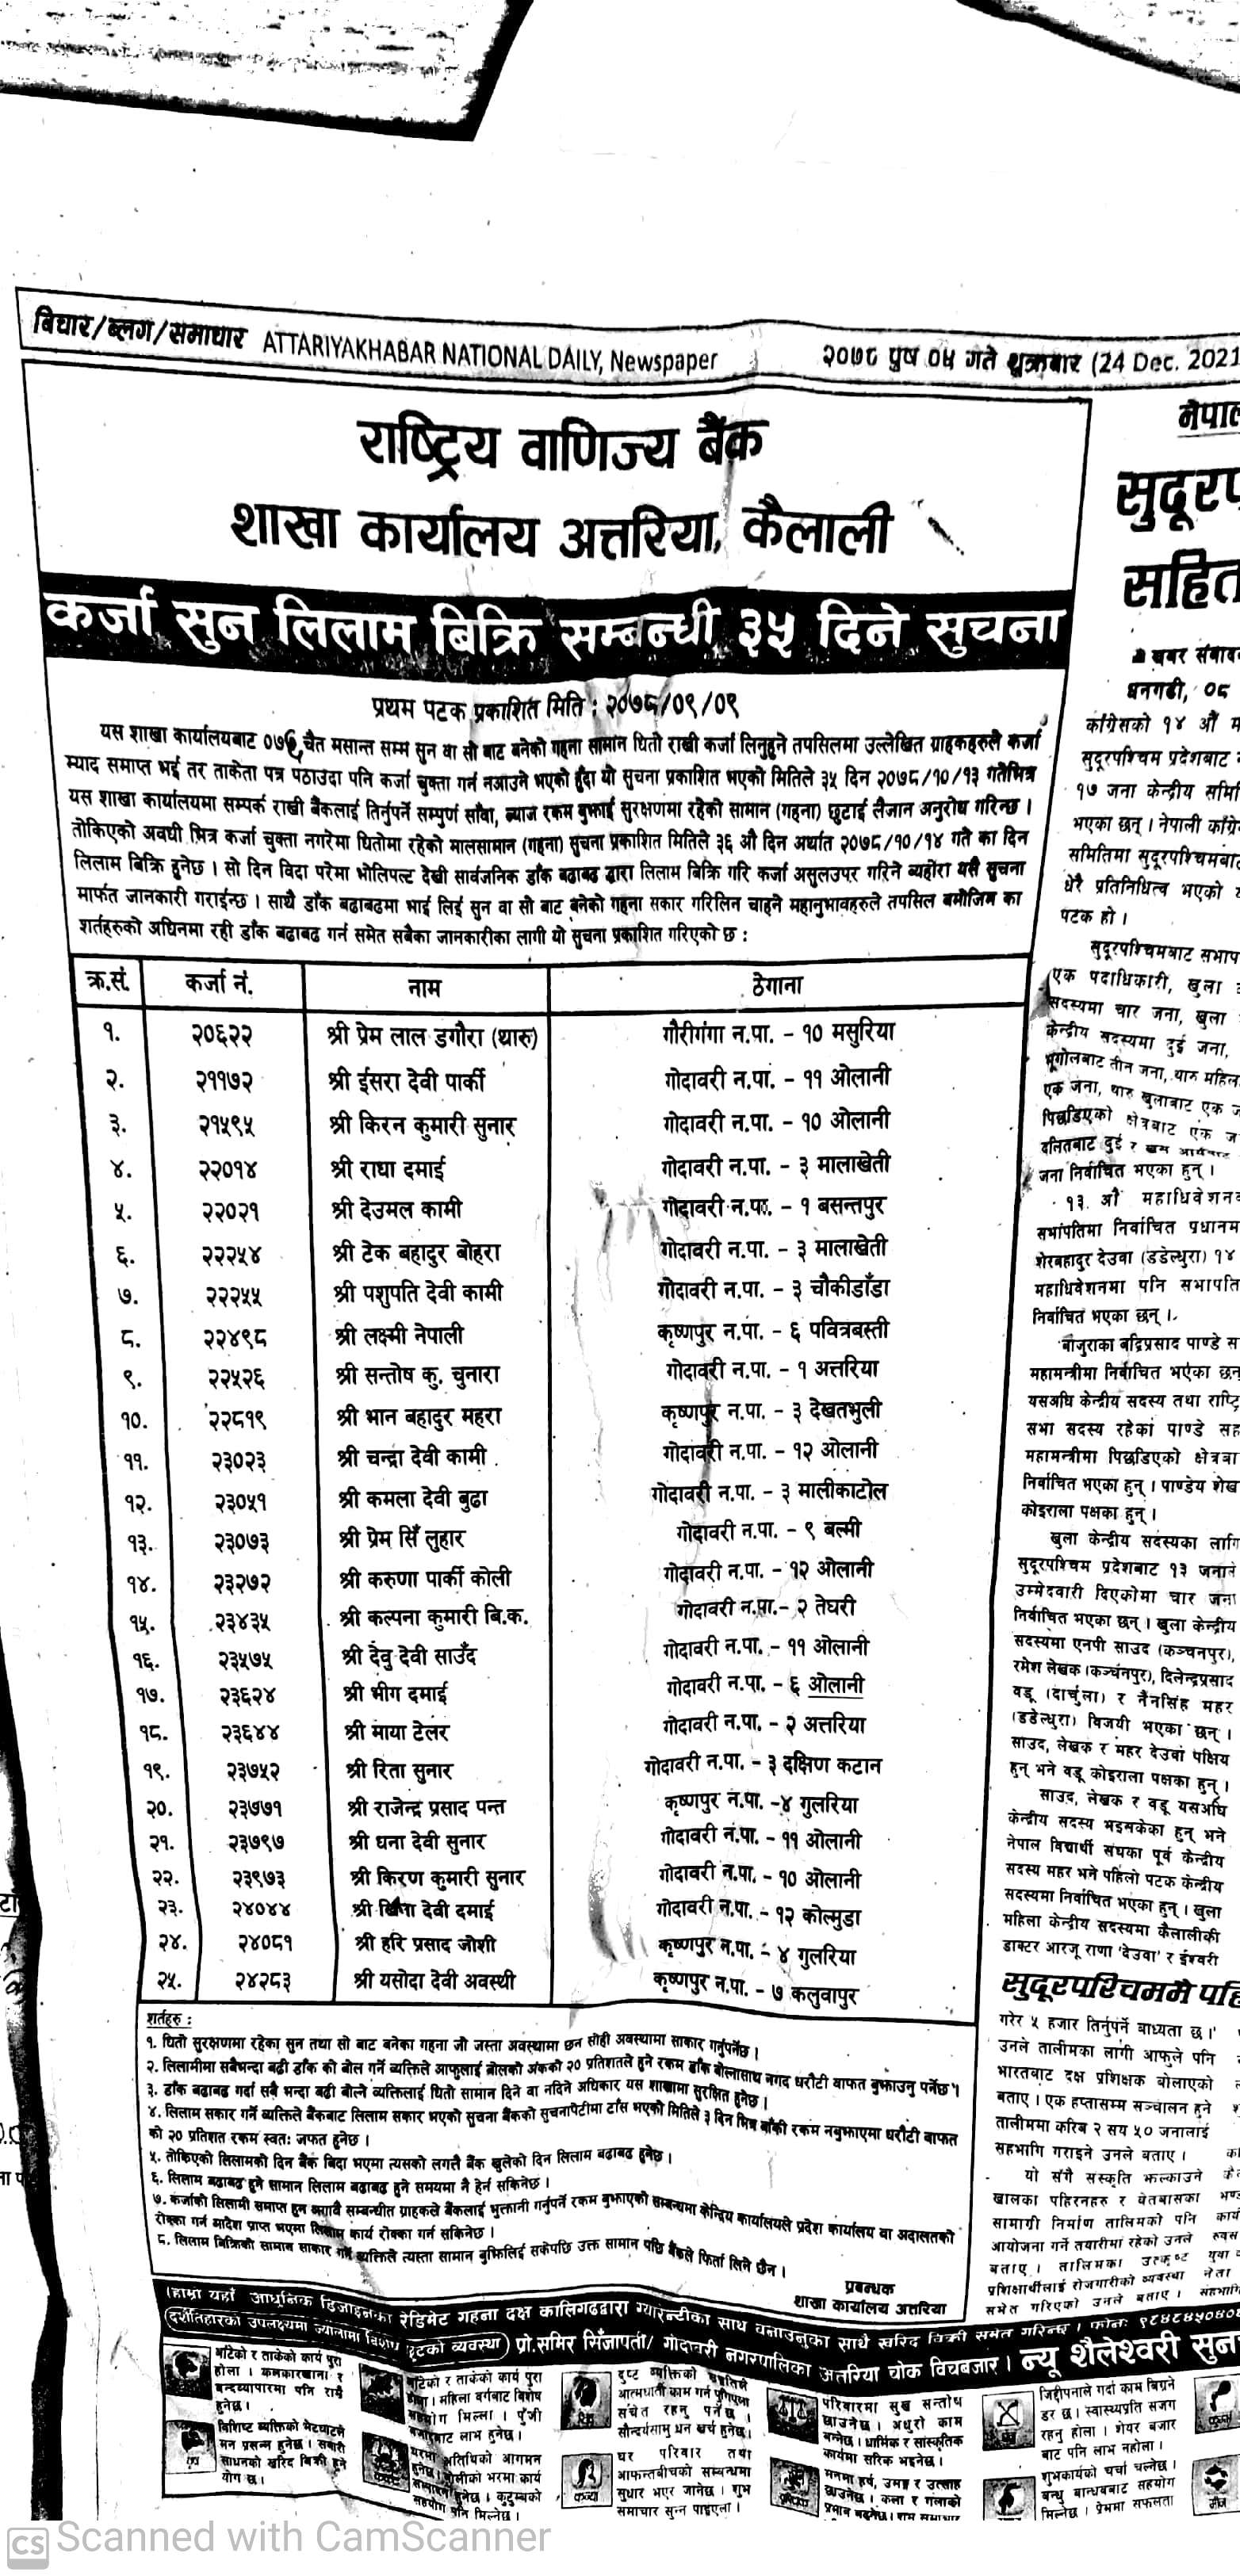 विचार/ब्लग/समाचार ATTARIYAKHABAR NATIONAL DAILY, Newspaper
२०७८ पुष ०५ गते शुक्रबार (24 Dec. 2021
राष्ट्रिय वाणिज्य बैंक
शाखा कार्यालय अत्तरिया, कैलाली
कर्जा सुन लिलाम बिक्रि सम्बन्धी ३५ दिने सुचना
प्रथम पटक प्रकाशित मिति : २०७८/०९/०९
यस शाखा कार्यालयबाट चैत मसान्त सम्म सुन वा सो बाट बनेको गहना सामान धितो राखी कर्जा लिनुहुने तपसिलमा उल्लेखित ग्राहकहरुले कर्जा
म्याद समाप्त भई तर ताकेता पत्र पठाउदा पनि कर्जा चुक्ता गर्न नआउने भएको हुँदा यो सुचना प्रकाशित भएको मितिले ३५ दिन २०७८/१०/१३ गतेभित्र
यस शाखा कार्यालयमा सम्पर्क राखी बैंकलाई तिर्नुपर्ने सम्पुर्ण साँवा, ब्याज रकम बुझाई सुरक्षणमा रहेको सामान (गहना) छुटाई लैजान अनुरोध गरिन्छ ।
तोकिएको अवधी भित्र कर्जा चुक्ता नगरेमा धितोमा रहेको मालसामान (गहना) सुचना प्रकाशित मितिले ३६ औ दिन अर्थात २०७८/१०/१४ गते का दिन
लिलाम बिक्रि हुनेछ । सो दिन विदा परेमा भोलिपल्ट देखी सार्वजनिक डाँक बढाबढ द्वारा लिलाम बिक्रि गरि कर्जा असुलउपर गरिने व्यहोरा यसै सुचना
मार्फत जानकारी गराईन्छ । साथै डाँक बढाबढमा भाई लिई सुन वा सो बाट बनेको गहना सकार गरिलिन चाहने महानुभावहरुले तपसिल बमोजिम का
शर्तहरुको अधिनमा रही डाँक बढाबढ गर्न समेत सबैका जानकारीका लागी यो सुचना प्रकाशित गरिएको छ :
क्र.सं. कर्जा नं. नाम ठेगाना
१. २०६२२ श्री प्रेम लाल डगौरा (थारु) गौरीगंगा न.पा. - १० मसुरिया
२. २११७२ श्री ईसरा देवी पार्की गोदावरी न.पा. - ११ ओलानी
३. २१५९५ श्री किरन कुमारी सुनार गोदावरी न.पा. - १० ओलानी
४. २२०१४ श्री राधा दमाई गोदावरी न.पा. - ३ मालाखेती
५. २२०२१ श्री देउमल कामी गोदावरी न.पा. - १ बसन्तपुर
६. २२२५४ श्री टेक बहादुर बोहरा गोदावरी न.पा. - ३ मालाखेती
७. २२२५५ श्री पशुपति देवी कामी गोदावरी न.पा. - ३ चौकीडाँडा
८. २२४९८ श्री लक्ष्मी नेपाली कृष्णपुर न.पा. - ६ पवित्रबस्ती
९. २२५२६ श्री सन्तोष कु. चुनारा गोदावरी न.पा. - १ अत्तरिया
१०. २२८१९ श्री भान बहादुर महरा कृष्णपुर न.पा. - ३ देखतभुली
११. २३०२३ श्री चन्द्रा देवी कामी गोदावरी न.पा. - १२ ओलानी
१२. २३०५१ श्री कमला देवी बुढा गोदावरी न.पा. - ३ मालीकाटोल
१३. २३०७३ श्री प्रेम सिँ लुहार गोदावरी न.पा. - ९ बल्मी
१४. २३२७२ श्री करुणा पार्की कोली गोदावरी न.पा. - १२ ओलानी
१५. २३४३५ श्री कल्पना कुमारी बि.क. गोदावरी न.पा.- २ तेघरी
१६. २३५७५ श्री देवु देवी साउँद गोदावरी न.पा. - ११ ओलानी
१७. २३६२४ श्री भीग दमाई गोदावरी न.पा. - ६ ओलानी
१८. २३६४४ श्री माया टेलर गोदावरी न.पा. - २ अत्तरिया
१९. २३७५२ श्री रिता सुनार गोदावरी न.पा. - ३ दक्षिण कटान
२०. २३७७१ श्री राजेन्द्र प्रसाद पन्त कृष्णपुर न.पा. -४ गुलरिया
२१. २३७९७ श्री धना देवी सुनार गोदावरी न.पा. - ११ ओलानी
२२. २३९७३ श्री किरण कुमारी सुनार गोदावरी न.पा. - १० ओलानी
२३. २४०४४ श्री देवी दमाई गोदावरी न.पा. - १२ कोल्मुडा
२४. २४०८१ श्री हरि प्रसाद जोशी कृष्णपुर न.पा. - ४ गुलरिया
२५. २४२८३ श्री यसोदा देवी अवस्थी कृष्णपुर न.पा. - ७ कलुवापुर
शर्तहरु :
१. धितो सुरक्षणमा रहेका सुन तथा सो बाट बनेका गहना जो जस्ता अवस्थामा छन सोही अवस्थामा साकार गर्नुपर्नेछ ।
२. लिलामीमा सबैभन्दा बढी डाँक को बोल गर्ने व्यक्तिले आफुलाई बोलको अंकको २० प्रतिशतले हुने रकम डाँक बोल्नासाथ नगद धरौटी वाफत बुझाउनु पर्नेछ ।
३. डाँक बढाबढ गर्दा सबै भन्दा बढी बोल्ने व्यक्तिलाई धितो सामान दिने वा नदिने अधिकार यस शाखामा सुरक्षित हुनेछ ।
४. लिलाम सकार गर्ने व्यक्तिले बैंकबाट लिलाम सकार भएको सुचना बैंकको सुचनापेटीमा टाँस भएको मितिले ३ दिन भित्र बाँकी रकम नबुझाएमा धरौटी वाफत
को २० प्रतिशत रकम स्वतः जफत हुनेछ ।
५. तोकिएको लिलामको दिन बैंक बिदा भएमा त्यसको लगत्तै बैंक खुलेको दिन लिलाम बढाबढ हुनेछ ।
६. लिलाम बढाबढ हुने सामान लिलाम बढाबढ हुने समयमा नै हेर्न सकिनेछ ।
७. कर्जाको लिलामी समाप्त हुन अगावै सम्बन्धीत ग्राहकले बैंकलाई भुक्तानी गर्नुपर्ने रकम बुझाएको सम्बन्धमा केन्द्रिय कार्यालयले प्रदेश कार्यालय वा अदालतको
रोक्का गर्न आदेश प्राप्त भएमा लिलाम कार्य रोक्का गर्न सकिनेछ ।
८. लिलाम बिक्रिको सामान साकार गर्ने व्यक्तिले त्यस्ता सामान बुझिलिई सकेपछि उक्त सामान पछि बैंकले फिर्ता लिने छैन ।
प्रबन्धक
शाखा कार्यालय अत्तरिया
हाम्रा यहाँ आधुनिक डिजाइनका रेडिमेट गहना दक्ष कालिगढद्वारा ग्यारेन्टीका साथ वनाउनुका साथै खरिद विक्री समेत गरिन्छ । फोनः ९८४८४५०४०
प्रो.समिर मिँजापती/ गोदावरी नगरपालिका अत्तरिया चोक विचबजार । न्यू शैलेश्वरी सुन
नेपाल
सुदूरप
सहित
खबर संवाद
धनगढी, ०८
कांग्रेसको १४ औं म
सुदूरपश्चिम प्रदेशबाट
१७ जना केन्द्रीय समिति
भएका छन् । नेपाली काँग्रे
समितिमा सुदूरपश्चिमबाट
धेरै प्रतिनिधित्व भएको
पटक हो ।
सुदूरपश्चिमबाट सभाप
एक पदाधिकारी, खुला
सदस्यमा चार जना, खुला
केन्द्रीय सदस्यमा दुई जना,
भूगोलबाट तीन जना, थारु महिल
एक जना, थारु खुलाबाट एक ज
पिछडिएको क्षेत्रबाट एक ज
दलितबाट दुई र
जना निर्वाचित भएका हुन् ।
१३ औं महाधिवेशन
सभापतिमा निर्वाचित प्रधानम
शेरबहादुर देउवा (डडेल्धुरा) १४
महाधिवेशनमा पनि सभापति
निर्वाचित भएका छन् ।
बाजुराका बद्रिप्रसाद पाण्डे स
महामन्त्रीमा निर्वाचित भएका छन्
यसअघि केन्द्रीय सदस्य तथा राष्ट्रि
सभा सदस्य रहेका पाण्डे सह
महामन्त्रीमा पिछडिएको क्षेत्रबा
निर्वाचित भएका हुन् । पाण्डेय शेख
कोइराला पक्षका हुन् ।
खुला केन्द्रीय सदस्यका लागि
सुदूरपश्चिम प्रदेशबाट १३ जनाले
उम्मेदवारी दिएकोमा चार जना
निर्वाचित भएका छन् । खुला केन्द्रीय
सदस्यमा एनपी साउद (कञ्चनपुर),
रमेश लेखक (कञ्चनपुर), दिलेन्द्रप्रसाद
वडू (दार्चुला) र नैनसिंह महर
(डडेल्धुरा) विजयी भएका छन् ।
साउद, लेखक र महर देउवा पक्षिय
हुन् भने वडू कोइराला पक्षका हुन् ।
साउद, लेखक र वडू यसअघि
केन्द्रीय सदस्य भइसकेका हुन् भने
नेपाल विद्यार्थी संघका पूर्व केन्द्रीय
सदस्य महर भने पहिलो पटक केन्द्रीय
सदस्यमा निर्वाचित भएका हुन् । खुला
महिला केन्द्रीय सदस्यमा कैलालीकी
डाक्टर आरजू राणा 'देउवा' र ईश्वरी
सुदूरपश्चिममै पहि
गरेर ५ हजार तिर्नुपर्ने बाध्यता छ ।'
उनले तालीमका लागी आफुले पनि
भारतबाट दक्ष प्रशिक्षक बोलाएको
बताए । एक हप्तासम्म सञ्चालन हुने
तालीममा करिब २ सय ५० जनालाई
सहभागि गराइने उनले बताए ।
यो संगै संस्कृति झल्काउने
खालका पहिरनहरु र वेतबासका
सामाग्री निर्माण तालिमको पनि
आयोजना गर्ने तयारीमा रहेको उनले
बताए । तालिमका उत्कृष्ट
प्रशिक्षार्थीलाई रोजगारीको व्यवस्था
समेत गरिएको उनले बताए ।
CS Scanned with CamScanner